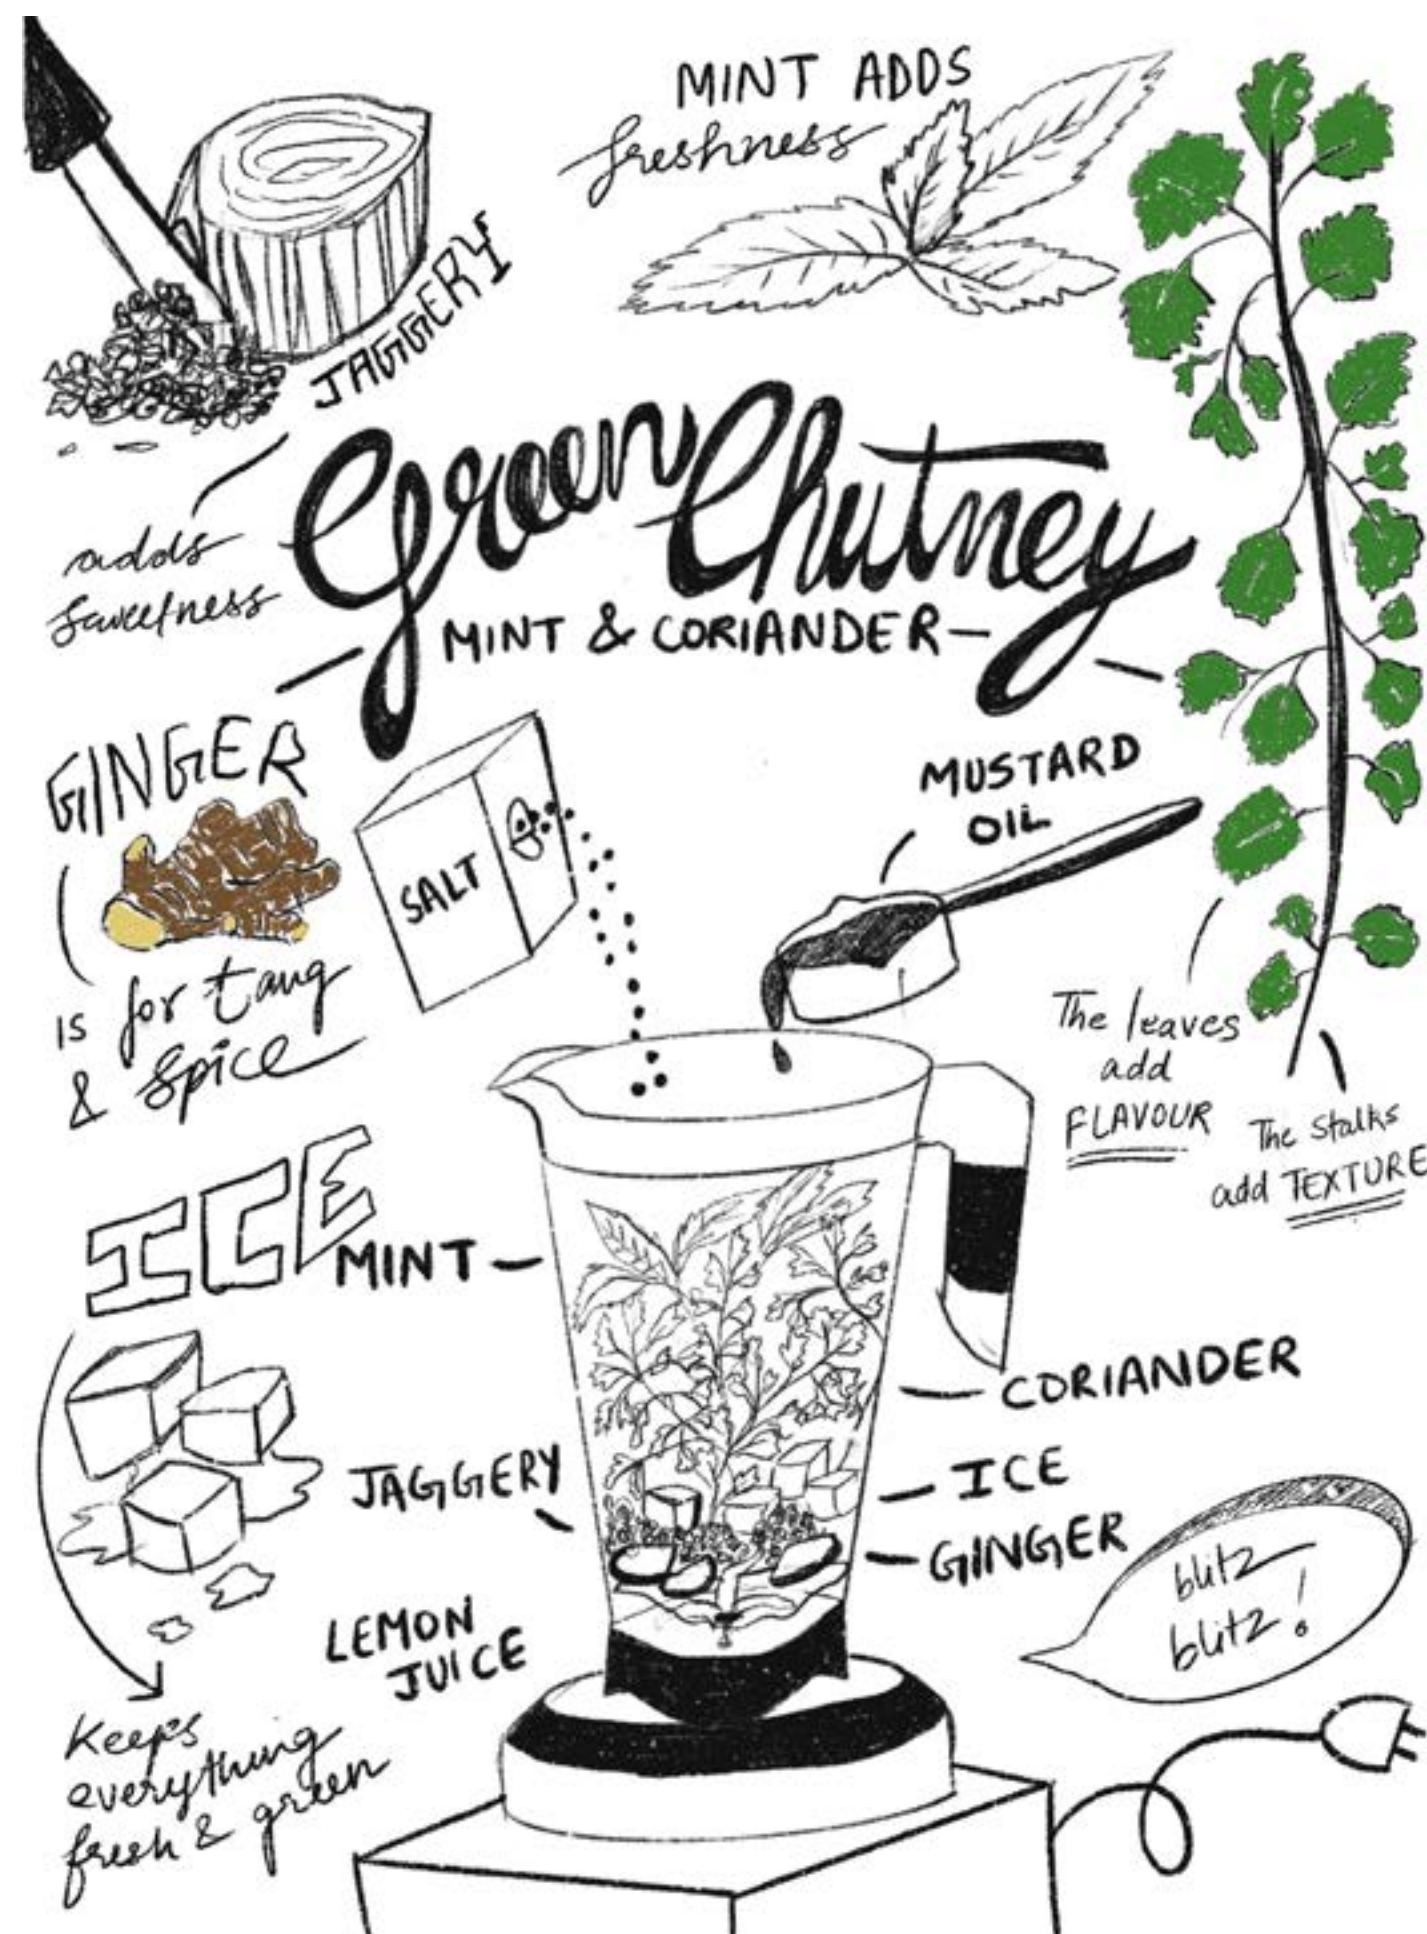 MINT ADDS
freshness
JAGGERY
adds
sweetness
Green Chutney
MINT & CORIANDER
GINGER
is for tang
& spice
SALT
MUSTARD
OIL
The leaves
add
FLAVOUR
The stalks
add TEXTURE
ICE
MINT
CORIANDER
JAGGERY
ICE
GINGER
LEMON
JUICE
blitz
blitz!
Keeps
everything
fresh & green